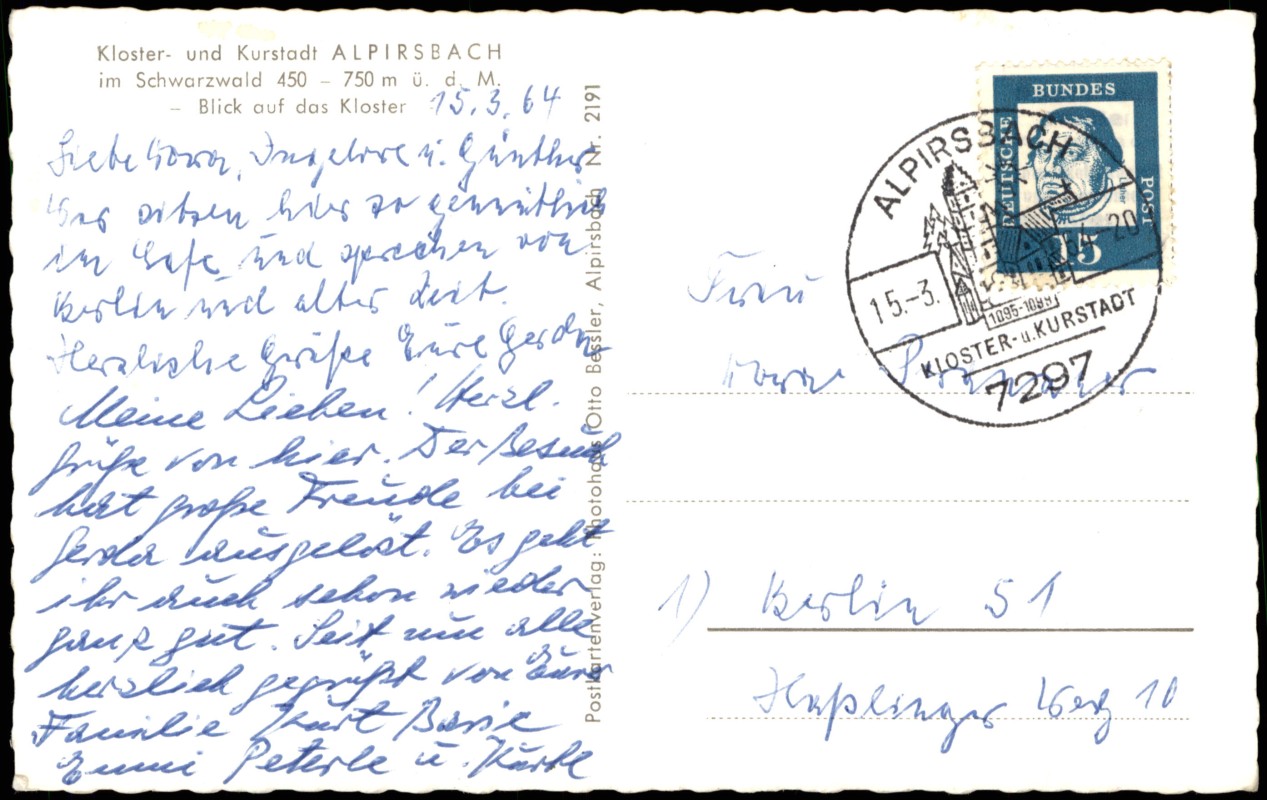 Kloster- und Kurstadt ALPIRSBACH
im Schwarzwald 450 – 750 m ü. d. M.
– Blick auf das Kloster
15.3.64
Liebe Ingelore u. Günther
Wir sitzen hier so gemütlich
im Cafe und sprechen von
Berlin und alter Zeit.
Herzliche Grüße Eure Gerda
Meine Lieben! Herzl.
Grüße von hier. Der Besuch
hat große Freude bei
Gerda ausgelöst. Es geht
ihr auch schon wieder
ganz gut. Seit nun alle
herzlich gegrüßt von Eurer
Familie Kurt
Emmi Peterle u.
Postkartenverlag: Photohaus Otto Bessler, Alpirsbach Nr. 2191
DEUTSCHE
BUNDES
POST
15
ALPIRSBACH
15.-3. 64 20
1095-1099
KLOSTER- u. KURSTADT
7297
Frau
1) Berlin 51
Haßlinger Weg 10